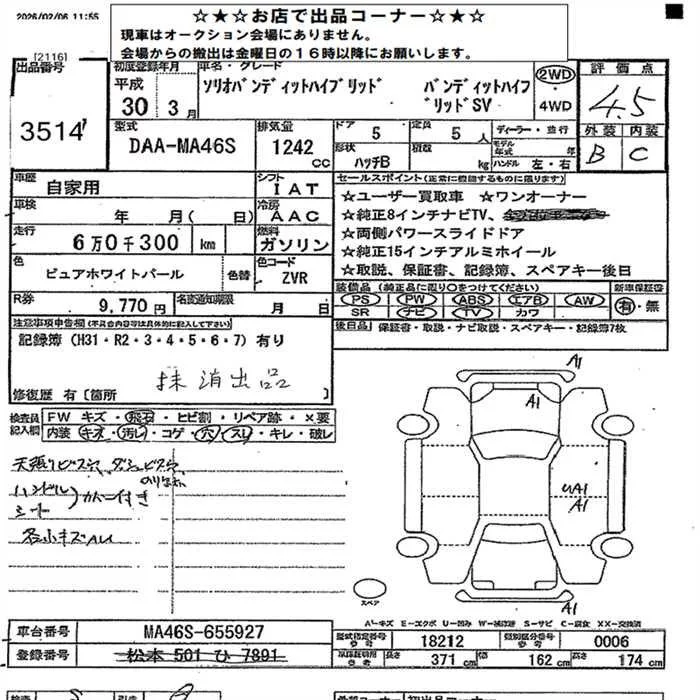 2026/02/06 11:55
☆★☆お店で出品コーナー★☆★
現車はオークション会場にありません。
会場からの搬出は金曜日の16時以降にお願いします。
[2116]
出品番号
3514
初度登録年月
平成
30年3月
車名・グレード
ソリオバンディットハイブリッド バンディットハイブ
リッドSV
2WD
4WD
評価点
4.5
外装 内装
B C
型式
DAA-MA46S
排気量
1242 CC
ドア 5
定員 5人
形状
ハッチB
積載 kg
ディーラー・並行
モデル年式 年
ハンドル 左・右
車歴
自家用
シフト
IAT
車検
年 月( 日)
冷房
AAC
走行
6万0千300 km
燃料
ガソリン
色
ピュアホワイトパール
色替
色コード
ZVR
R券 9,770円
名変通知期限 月 日
セールスポイント(正常に機能するものに限ります)
☆ユーザー買取車 ☆ワンオーナー
☆純正8インチナビTV、
☆両側パワースライドドア
☆純正15インチアルミホイール
☆取説、保証書、記録簿、スペアキー後日
装備品(純正品に限り○をつけてください)
PS PW ABS エアB AW
SR ナビ TV カワ
新車保証書
有・無
後日品 保証書・取説・ナビ取説・スペアキー・記録簿7枚
注意事項申告欄(不具合内容等は具体的に記入して下さい)
記録簿(H31・R2・3・4・5・6・7)有り
修復歴 有〔箇所
抹消出品
検査員
記入欄
FW キズ・飛石・ヒビ割・リペア跡・×要
内装 キズ・汚レ・コゲ・穴・スレ・キレ・破レ
天張りビス穴 ダッシュビス穴
のりはがれ
ハンドル
シート
カバー付き
各小キズハレ
A1
A1
UA1
A1
A1
スペア
A-キズ E-エクボ U-凹み W-補修跡 S-サビ C-腐食 XX-交換済
車台番号 MA46S-655927
登録番号 松本 501 ひ 7891
型式指定番号 18212
類別区分番号 0006
長さ 371 cm 幅 162 cm 高さ 174 cm